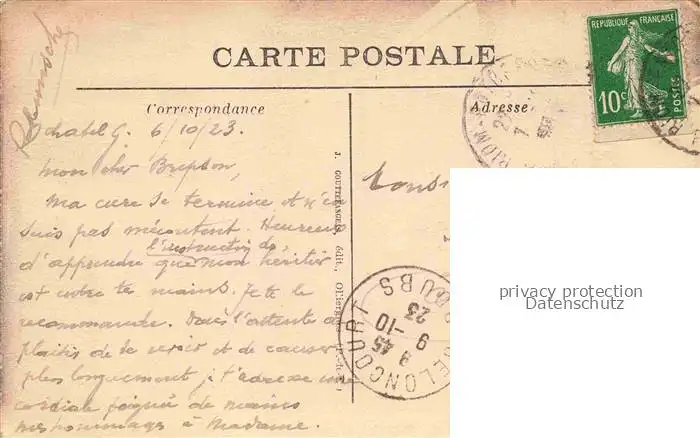 CARTE POSTALE
REPUBLIQUE FRANÇAISE
10c
POSTES
Correspondance
Adresse
Chatel G. 6/10/23.
mon cher
Ma cure se termine et n'en
suis pas mécontent. Heureux
l'instruction de,
d'apprendre que mon héritier
est entre tes mains. Je te le
recommande. Dans l'attente du
plaisir de te revoir et de causer
plus longuement, je t'adresse une
cordiale poignée de mains
mes hommages à Madame.
J. GOUTTEFANGEAS, édit., Olliergues
RIOM
SELONCOURT
DOUBS
9 45
9 -10
23
privacy protection
Datenschutz